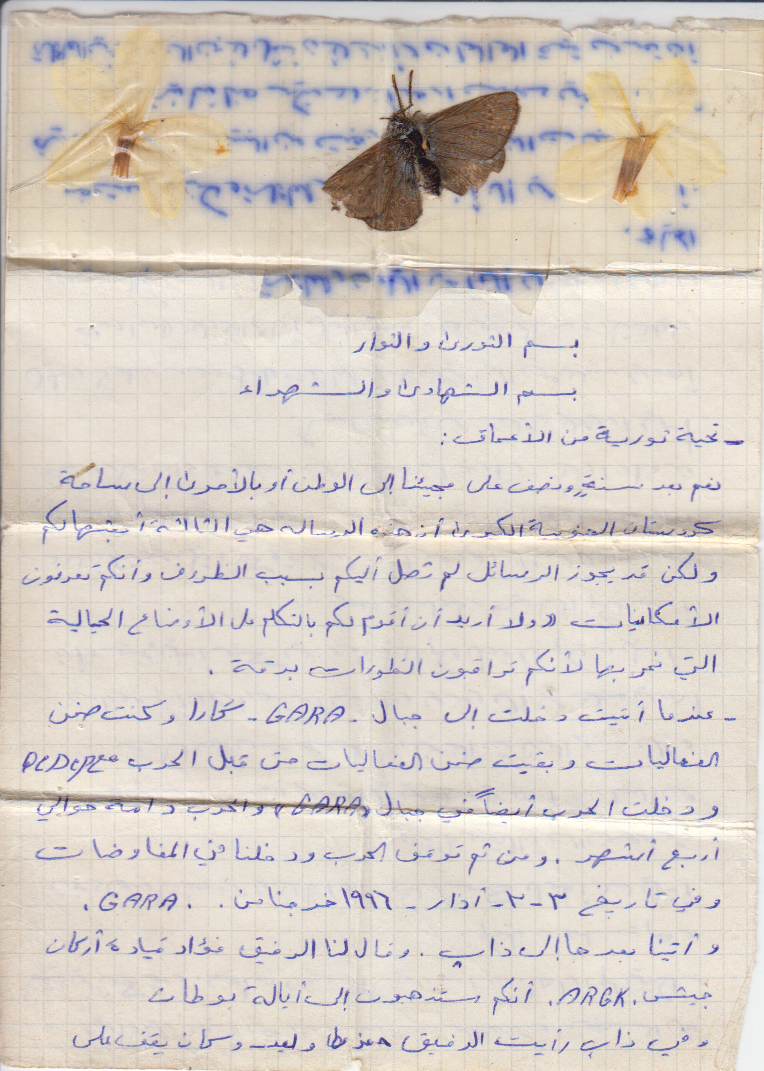 بسم الثورة والثوار
بسم الشهادة والشهداء
- تحية ثورية من الأعماق :
نعم بعد سنةٍ ونصف على مجيئنا إلى الوطن أو بالأحرى إلى ساحة
كردستان الجنوبية الكبرى أن هذه الرساله هي الثالثة أبعثها لكم
ولكن قد يجوز الرسائل لم تصل أليكم بسبب الظروف وأنكم تعرفون
الأمكانيات ولا أريد أن أقدم لكم بالتكلم عن الأوضاع الحيالية
التي نمر بها لأنكم تراقبون التطورات بدقة .
- عندما أتيت دخلت إلى جبال - GARA - گارا وكنت ضمن
الفعاليات وبقيت ضمن الفعاليات حتى قبل الحرب
ودخلت الحرب أيضاً في جبال «GARA» والحرب دامة حوالي
أربع أشهر . ومن ثم توقف الحرب ودخلنا في المفاوضات
وفي تاريخ ٣ - ٣ - أدار - ١٩٩٦ خرجنا من . GARA .
وأتينا بعدها إلى ذاپ . وقال لنا الرفيق فؤاد قيادة أركان
جيش . ARGK . أنكم ستذهبون إلى أيالة بوطان
وفي ذاپ رأيت الرفيق وكان يقف على